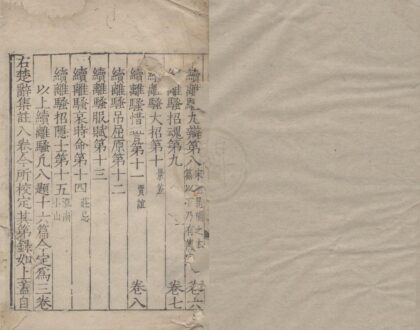 續離騷九辯第八 宋玉 篇以下乃有 卷六
離騷招魂第九 卷七
離騷大招第十 景差
續離騷惜誓第十一 賈誼 卷八
續離騷弔屈原第十二
續離騷服賦第十三
續離騷哀時命第十四 莊忌
續離騷招隱士第十五 淮南小山
以上續離騷凡八題十六篇今定為三卷
右楚辭集註八卷今所校定其第錄如上蓋自